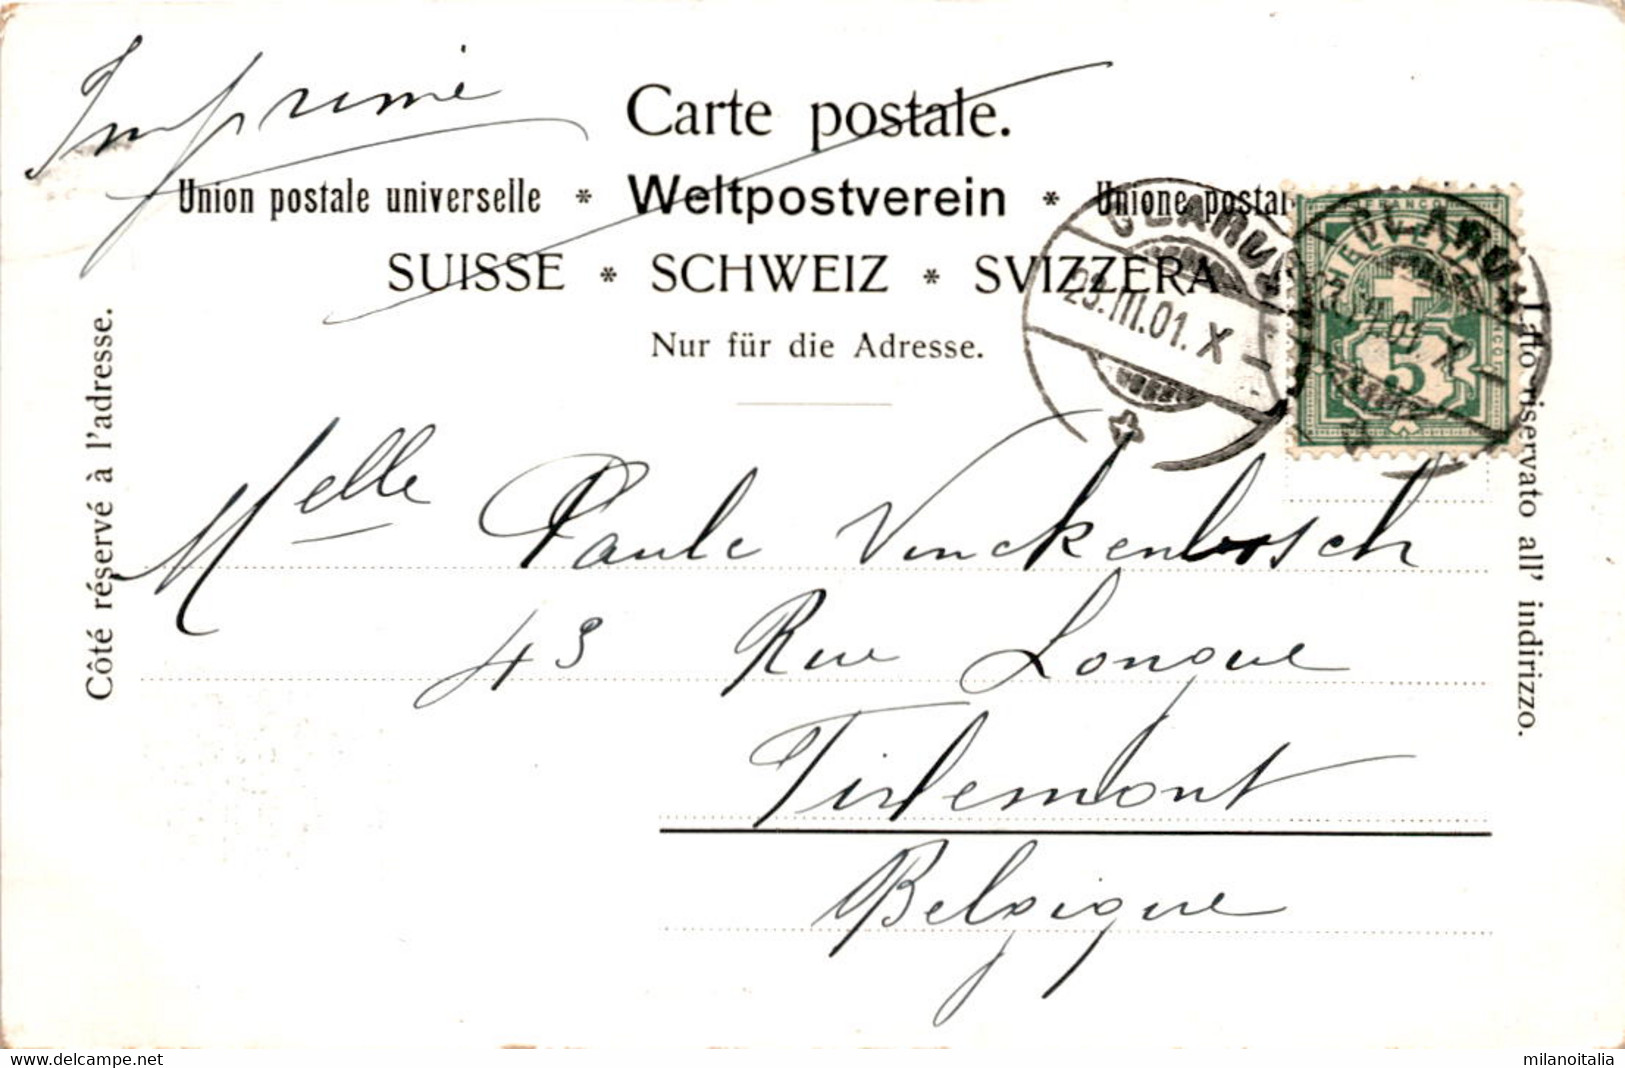 Imprimé
Carte postale.
Union postale universelle * Weltpostverein * Unione postal
SUISSE * SCHWEIZ * SVIZZERA
Nur für die Adresse.
GLARUS
23.III.01.X
GLARUS
FRANCO
HELVETIA
5
Côté réservé à l'adresse.
Lato riservato all' indirizzo.
Melle Paule Vinckenbosch
43 Rue Longue
Tirlemont
Belgique
www.delcampe.net
milanoitalia